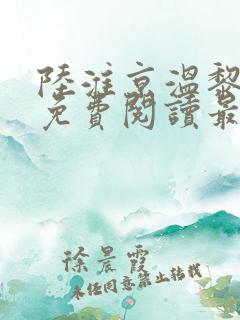 陸淮京溫黎
免費閱讀最
徐晨霞
未经同意禁止转载